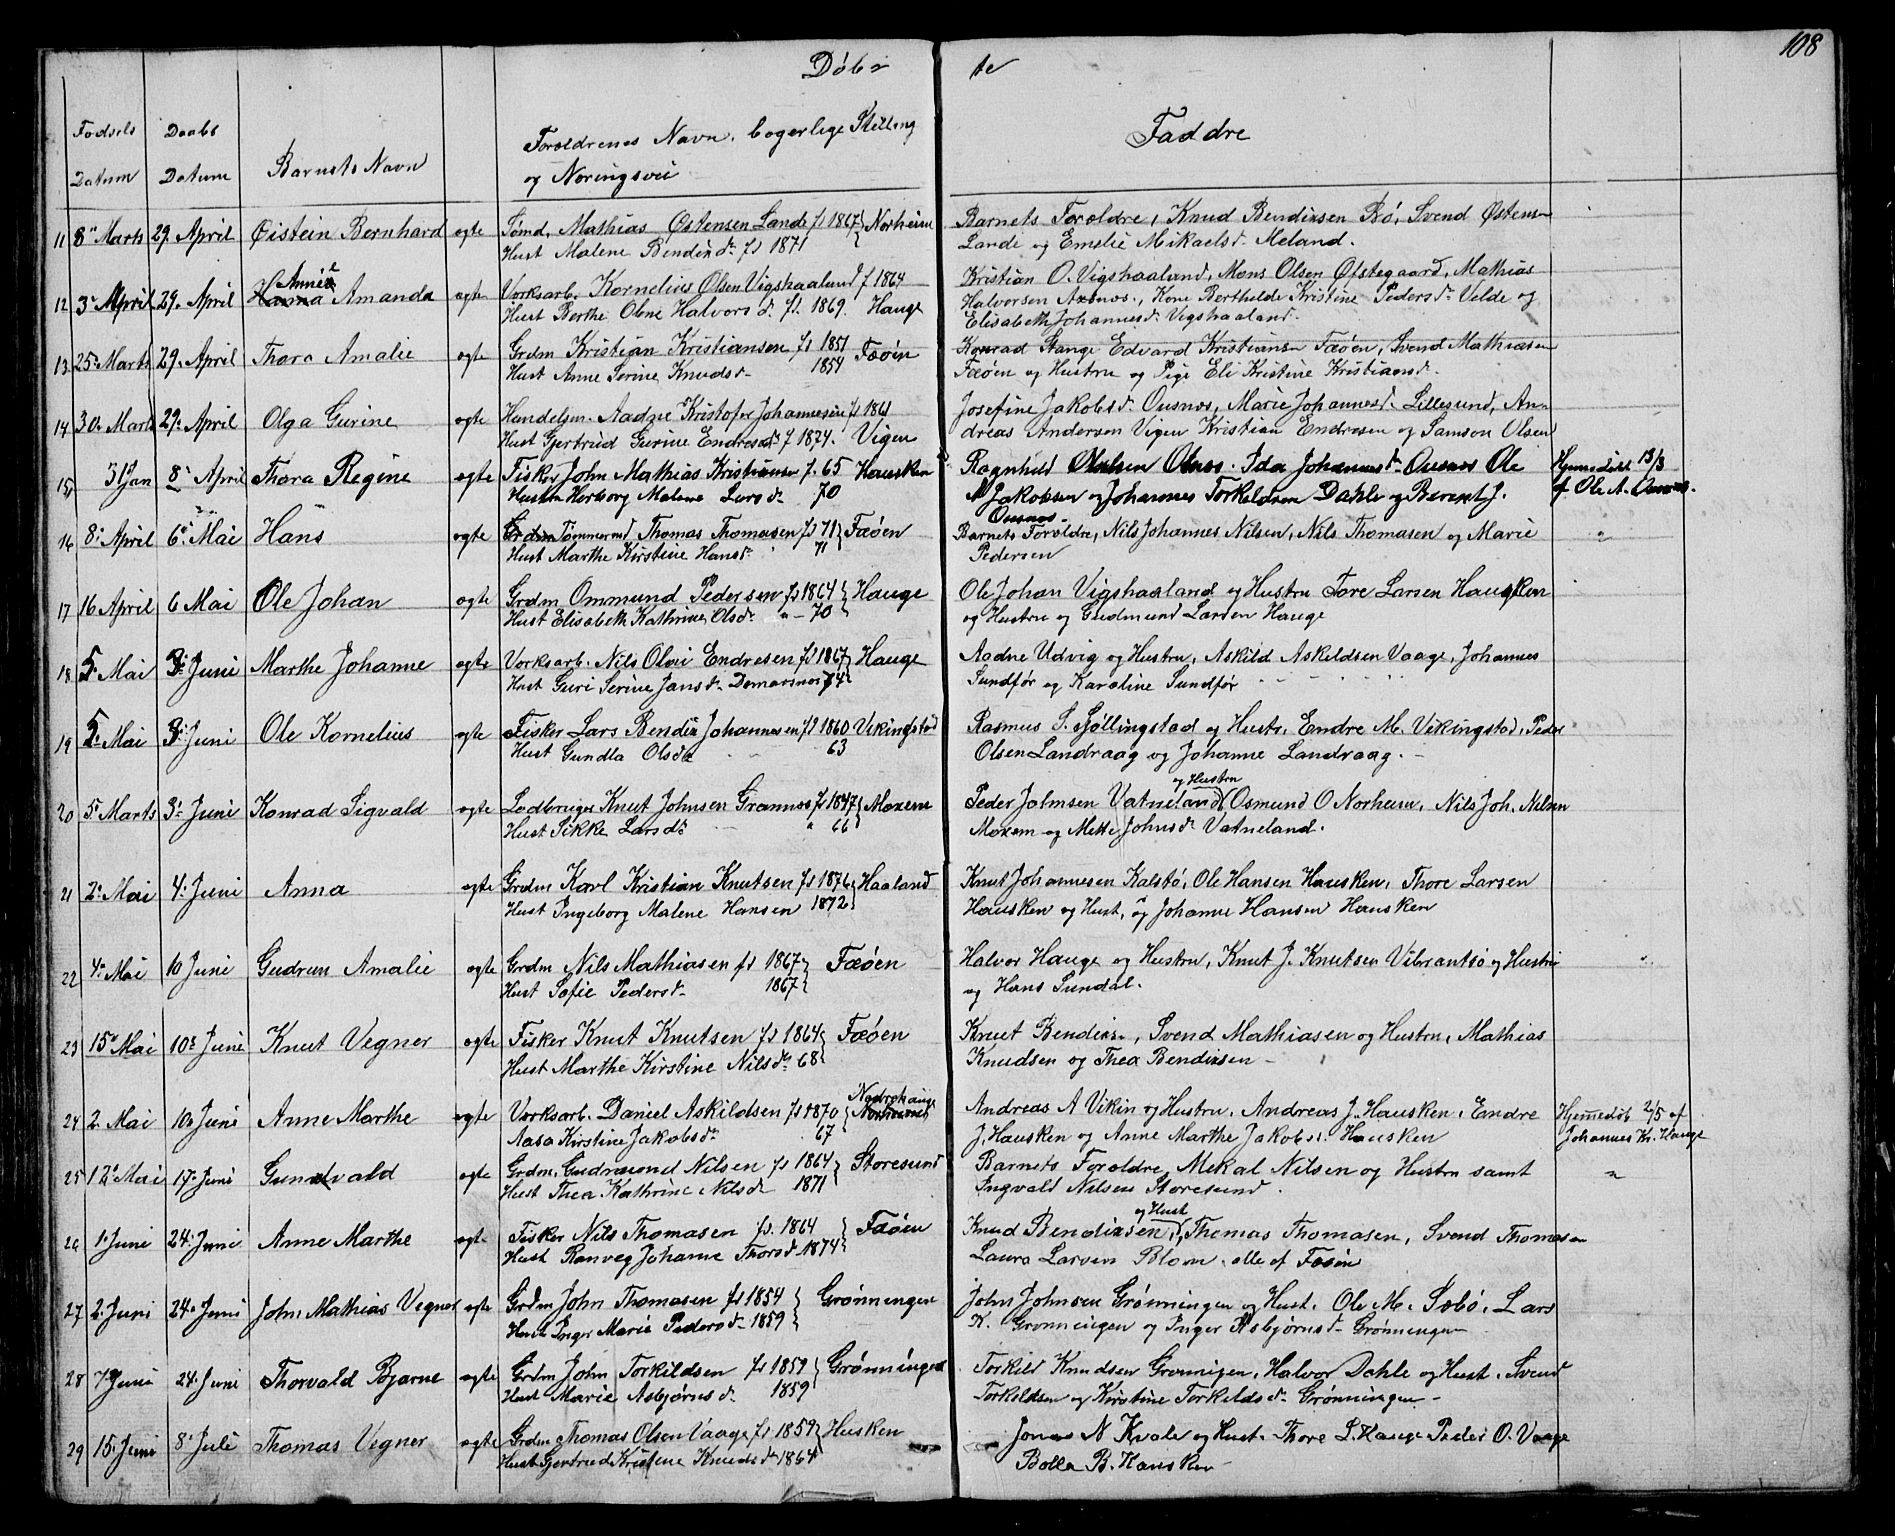 108
Döbte
Fødsels Datum
Daabs Datum
Barnets Navn
Forældrenes Navn, borgerlige Stilling
og Næringsvei
Faddre
11 8 Marts 29 April Øistein Bernhard ægte Sømd. Mathias Østensen Lande fd 1867 Norheim Barnets Forældre, Knud Bendixen Bø, Svend Østensen
Hust Malene Bendixd. fd 1871 Lande og Emelie Mikaelsd. Meland.
Annie
12 3 April 29 April Hanna Amanda ægte Værksarb. Kornelius Olsen Vigshaaland f 1864 Kristian O. Vigshaaland, Mons Olsen Øfstegaard, Mathias
Hust Berthe Oline Halvorsd. fd. 1869. Hauge Halvorsen Axenes, Kone Berthilde Kristine Pedersd. Velde og
Elisabeth Johannesd. Vigshaaland.
13 25 Marts 29 April Thora Amalie ægte Grdm Kristian Kristiansen fd 1851 Fæøen Konrad Stange Edvard Kristiansen Fæøen, Svend Mathiasen
Hust Anne Serine Knudsd. 1854 Fæøen og Hustru og Pige Eli Kristine Kristiansd.
14 30 Marts 29 April Olga Gurine ægte Handelsm. Aadne Kristofer Johannesen fd 1861 Josefine Jakobsd. Ousnes, Marie Johannesd. Lillesund, An-
Hust Gjertrud Gurine Endresd. f 1874. Vigen dreas Andersen Vigen Kristian Endresen og Samson Olsen
15 31 Jan 8 April Thora Regine ægte Fisker John Mathias Kristiansen f. 65 Hausken Ragnhild Ida Johannesd. Ousnes Ole Hjemmedøbt 13/3
Hustru Herborg Malene Larsd. 70 Jakobsen og Johannes Torkeldsen Dahle og Berent J. af Ole A. Ousnes.
Ousnes
16 8 April 6 Mai Hans ægte Grdm Tømmermd Thomas Thomasen fd 71 Fæøen Barnets Forældre, Nils Johannes Nilsen, Nils Thomasen og Marie "
Hust Marthe Kirstine Hansd. " 71 Pedersen
17 16 April 6 Mai Ole Johan ægte Grdm Ommund Pedersen fd 1864 Hauge Ole Johan Vigshaaland og Hustru Tore Larsen Hausken
Hust Elisabeth Kathrine Olsd. " 70 og Hustru og Gudmund Larsen Hauge
18 5 Mai 3 Juni Marthe Johanne ægte Værksarb. Nils Olai Endresen fd 1867 Hauge Aadne Udvig og Hustru, Askild Askildsen Vaage, Johannes
Hust Guri Serine Jansd. 74 Sundfør og Karoline Sundfør
19 5 Mai 3 Juni Ole Kornelius ægte Fisker Lars Bendix Johannesen fd 1860 Vikingstad Rasmus S. Fjøllingstad og Hustr. Endre M. Vikingstad, Peder
Hust Gundla Olsd. 63 Olsen Landraag og Johanne Landraag.
og Hustru
20 5 Marts 3 Juni Konrad Sigvald ægte Ledbruger Knut Johnsen Grannes fd 1847 Moxem Peder Johnsen Vatneland Osmund O Norheim, Nils Joh. Nilsen
Hust Sikke Larsd. " 66 Moxem og Mette Johnsd. Vatneland.
21 2 Mai 4 Juni Anna ægte Grdm Karl Kristian Knutsen fd 1876 Haaland Knut Johannesen Kalstø, Ole Hansen Hausken, Thore Larsen
Hust Ingeborg Malene Hansen 1872 Hausken og Hust, og Johanne Hansen Hausken
22 4 Mai 10 Juni Gudrun Amalie ægte Grdm Nils Mathiasen fd 1867 Fæøen Halvor Hauge og Hustru, Knut J. Knutsen Vibrantsø og Hustru "
Hust Sofie Pedersd. 1867 og Hans Sundal.
23 15 Mai 10 Juni Knut Vegner ægte Fisker Knut Knutsen fd 1864 Fæøen Knut Bendixen, Svend Mathiasen og Hustru, Mathias
Hust Marthe Kirstine Nilsd. 68 Knudsen og Thea Bendixsen
24 2 Mai 10 Juni Anne Marthe ægte Værksarb. Daniel Askildsen fd 1870 Nedrehauge Andreas A Vikin og Hustru, Andreas J. Hausken, Endre Hjemmedøbt 2/5 af
Aasa Kirstine Jakobsd. 67 J. Hausken og Anne Marthe Jakobsd. Hausken Johannes Kr. Hauge
25 12 Mai 17 Juni Gundvald ægte Grdm. Gudmund Nilsen fd 1864 Storesund Barnets Forældre, Mekal Nilsen og Hustru samt "
Hust Thea Kathrine Nilsd. 1871 Ingvald Nilsen Storesund.
og Hust
26 1 Juni 24 Juni Anne Marthe ægte Fisker Nils Thomasen fd. 1864 Fæøen Knud Bendixsen, Thomas Thomasen, Svend Thomasen
Hust Ranveg Johanne Thorsd. 1874 Laura Larsen Blom, alle af Fæøen
27 2 Juni 24 Juni John Mathias Vegner ægte Grdm John Thomasen fd 1854 Grønningen John Johnsen Grønningen og Hust. Ole M. Sæbø, Lars
Hust Inger Marie Pedersd. 1859 K. Grønningen og Inger Asbjørnsd. Grønningen
28 7 Juni 24 Juni Thorvald Bjarne ægte Grdm John Torkildsen fd 1859 Grønningen Torkild Knudsen Grønnigen, Halvor Dahle og Hust. Svend
Hust Marie Asbjørnsd. 1859 Torkildsen og Kirstine Torkildsd. Grønningen
29 15 Juni 8 Juli Thomas Vegner ægte Grdm Thomas Olsen Vaage fd 1859 Husken Jonas N Kvale og Hust. Thore L. Hauge Peder O. Vaage
Hust Gjertrud Kristine Knudsd. 1864 Bolla B. Hausken